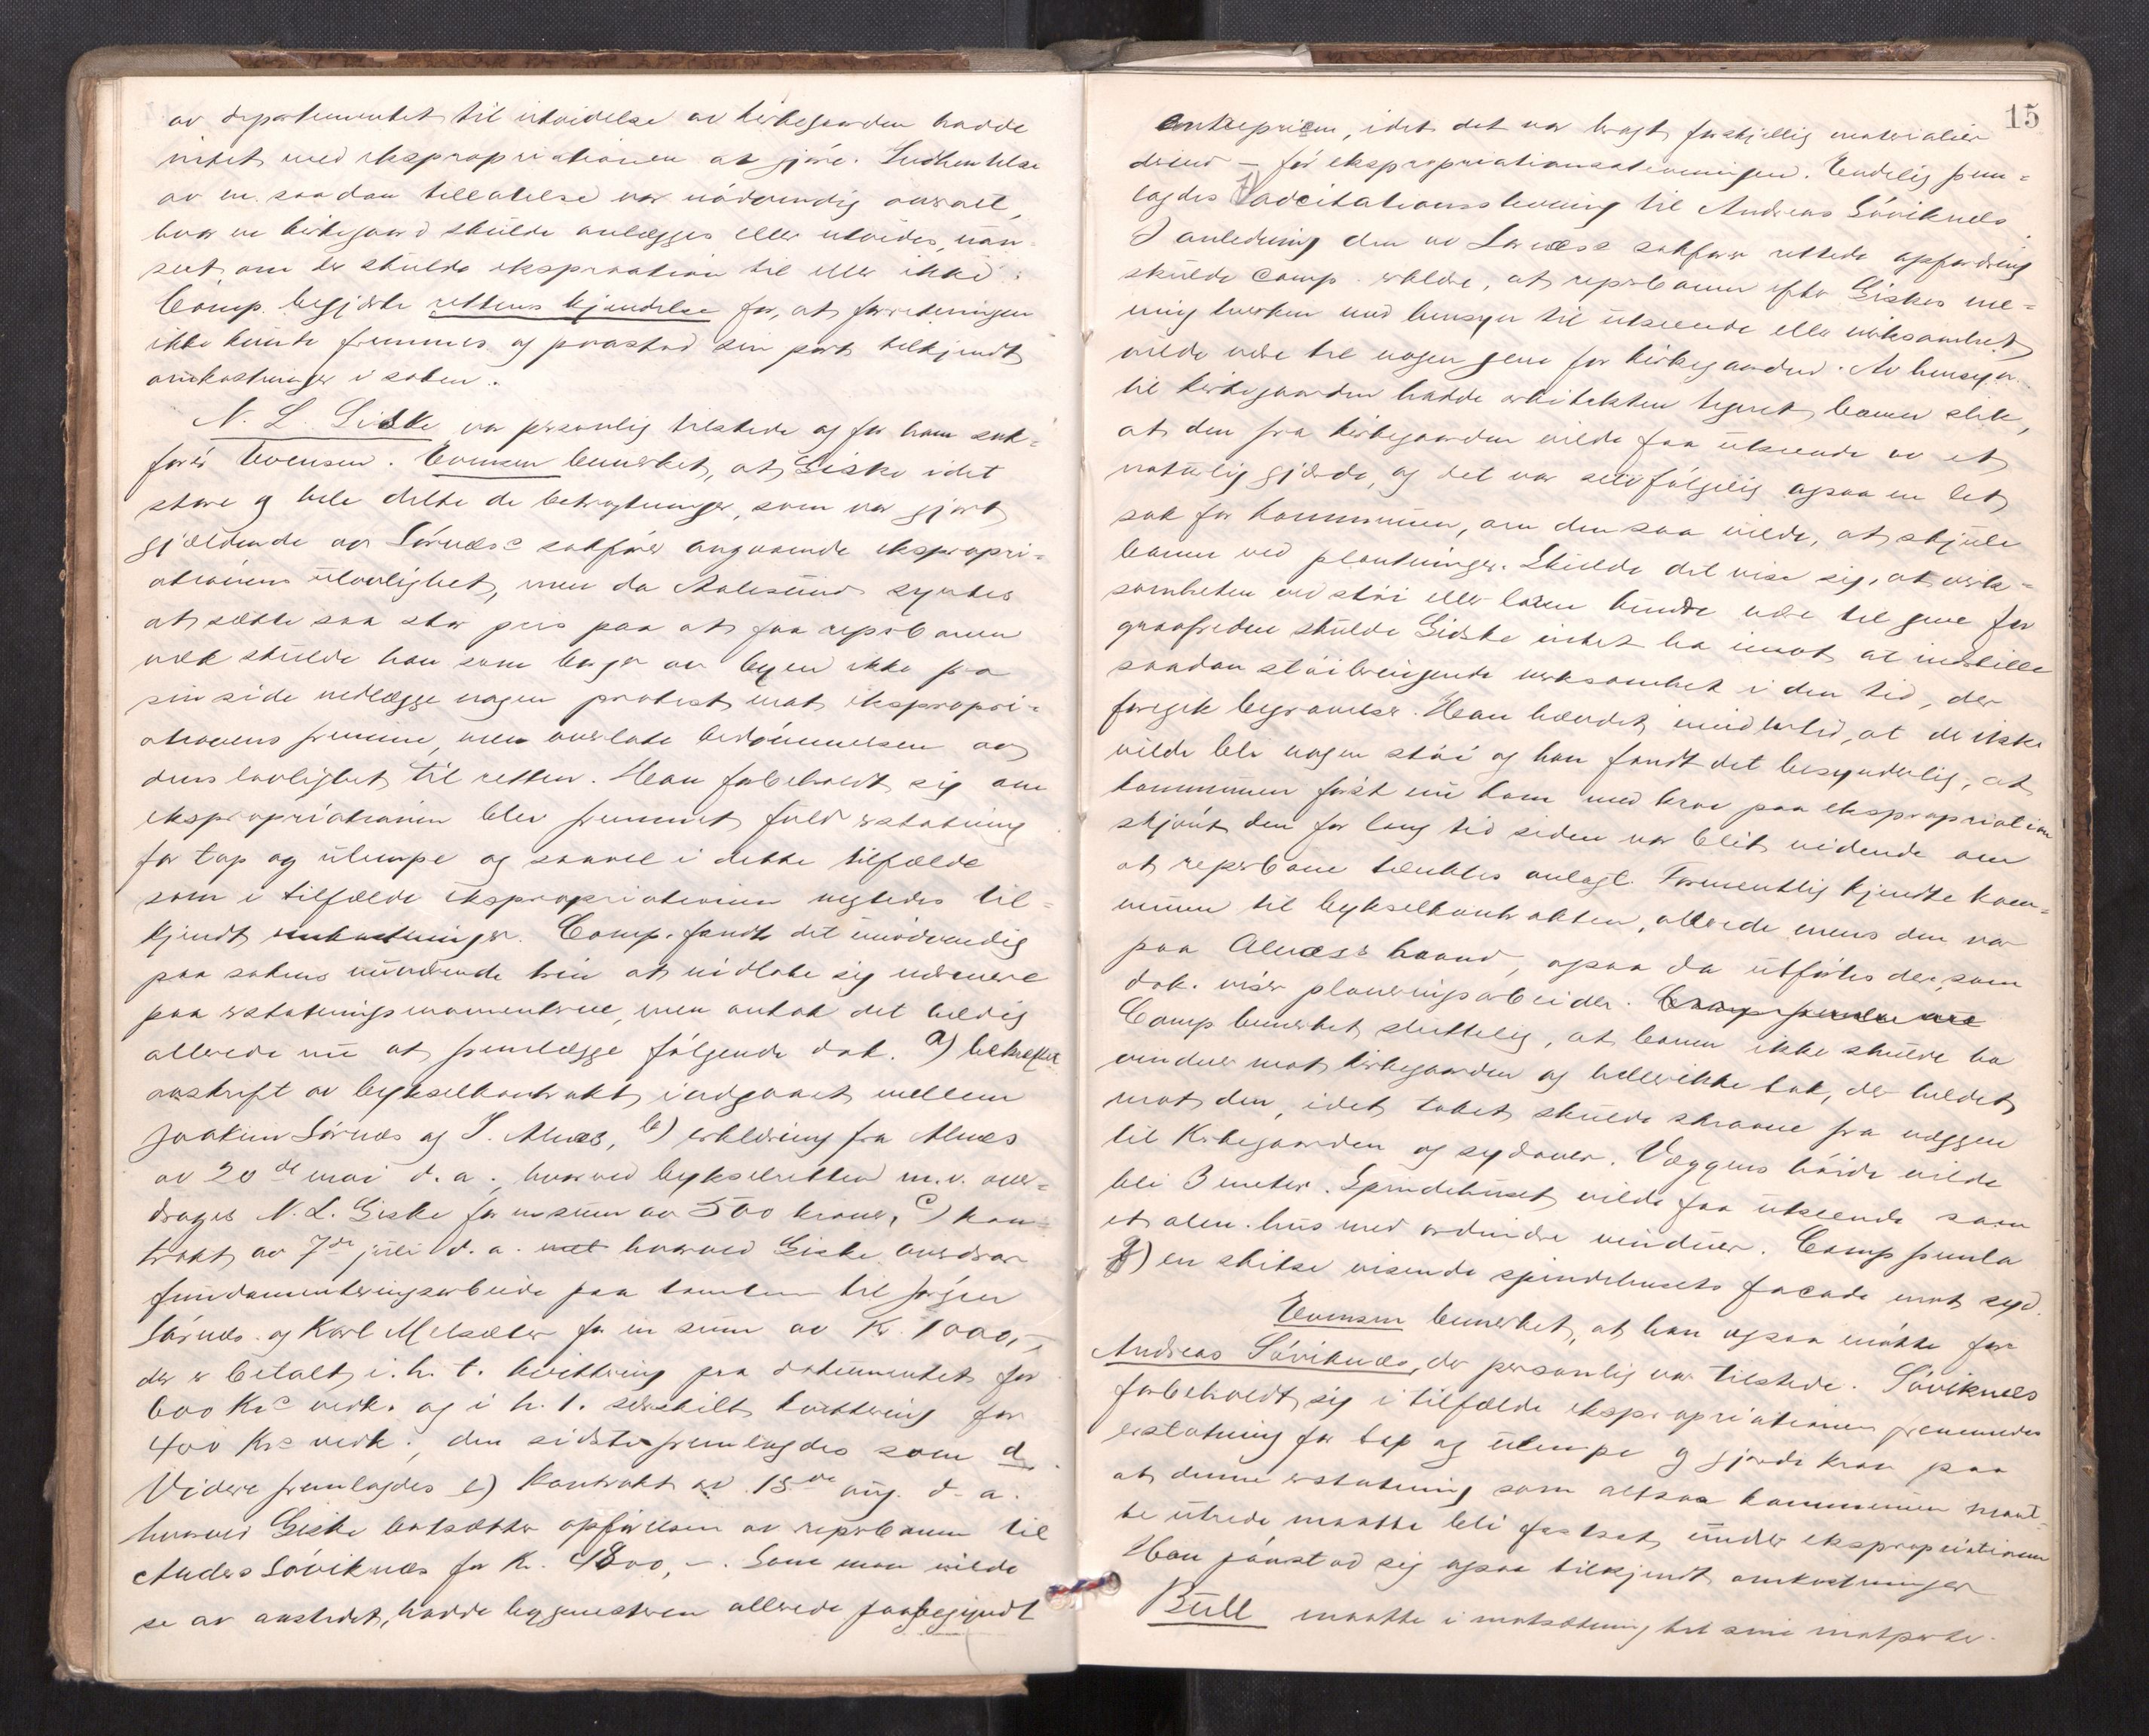 av departementet til utvidelse av kirkegaarden hadde
intet med ekspropriationen at gjøre. Indhentelse
av en saadan tillatelse var nødvendig overalt,
hvor en kirkegaard skulde anlægges eller utvides, uan-
seet om der skulde ekspropriation til eller ikke.
Comp. begjærte rettens kjendelse for, at forretningen
ikke kunde fremmes og paastod sin part tilkjendt
omkostninger i saken.
N. L. Giske var personlig tilstede og for ham sak-
fører Evensen. Evensen bemerket, at Giske i det
store og hele delte de betragtninger, som var gjort
gjældende av Sørnæss sakfører angaaende ekspropri-
ationens ulovlighet, men da Aalesund syntes
at sætte saa stor pris paa at faa reperbanen
væk skulde han som borger av byen ikke fra
sin side nedlægge nogen protest mot ekspropri-
ationens fremme, men overlate bedømmelsen av
dens lovlighet til retten. Han forbeholdt sig om
ekspropriationen blev fremmet fuld erstatning
for tap og ulempe og saavel i dette tilfælde
som i tilfælde ekspropriationen negtedes til-
kjendt omkostninger. Comp. fandt det unødvendig
paa sakens nuværende trin at indlate sig nærmere
paa erstatningsmomentene, men antok det heldig
allerede nu at fremlægge følgende dok. a) bekræftet
avskrift av bykselkontrakt indgaaet mellem
Joakim Sørnæs og I. Alnæs, b) erklæring fra Alnæs
av 20de mai d. a., hvorved bykselretten m. v. over-
drages N. L. Giske for en sum av 500 kroner, c) kon-
trakt av 7de juli d. a. hvorved Giske overdrar
fundamenteringsarbeide paa tomten til Jørgen
Sørnæs og Karl Melsæter for en sum av Kr. 1000,-
der er betalt i. h. t. kvittering paa dokumentet for
600 Krs vedk. og i h. t. særskilt kvittering for
400 Krs vedk., den sidste fremlagdes som d.
Videre fremlagdes e) Kontrakt av 15de aug. d. a.
hvorved Giske bortsætter opførelsen av reperbanen til
Anders Søviknæs for Kr. 4800,-. Som man vilde
se av aastedet, hadde byggmesteren allerede paabegyndt
15
entreprisen, idet det var bragt forskjellig materialier
derind - før ekspropriationsstevningen. Endelig frem-
lagdes f) adcitationsstevning til Andreas Søviknæs.
I anledning den av Sørnæss sakfører rettede opfordring
skulde comp. erklære, at reperbanen efter Giskes me-
ning hverken med hensyn til utseende eller virksomhet
vilde være til nogen gene for kirkegaarden. Av hensyn
til kirkegaarden hadde arkitekten tegnet banen slik,
at den fra kirkegaarden vilde faa utseende av et
naturlig gjærde, og det var selvfølgelig ogsaa en let
sak for kommunen, om den saa vilde, at skjule
banen ved plantninger. Skulde det vise sig, at virk-
somheten ved støi eller larm kunde være til gene for
gravfreden skulde Giske intet ha imot at indstille
saadan støibringende virksomhet i den tid, der
foregik begravelser. Han hævdet imidlertid, at der ikke
vilde bli nogen støi og han fandt det besynderlig, at
kommunen først nu kom med krav paa ekspropriation
skjønt den for lang tid siden var blit vidende om
at reperbane tænktes anlagt. Formentlig kjendte kom-
munen til bykselkontrakten, allerede mens den var
paa Alnæss haand, ogsaa da utførtes der, som
dok. viser planeringsarbeider.
Comp bemerket sluttelig, at banen ikke skulde ha
vinduer mot kirkegaarden og heller ikke tak, der heldet
mot den, idet taket skulde skraane fra væggen
til Kirkegaarden og sydover. Væggens høide vilde
bli 3 meter. Spindehuset vilde faa utseende som
et alm. hus med ordinære vinduer. Comp fremla
g) en skitse visende spindehusets facade mot syd.
Evensen bemerket, at han ogsaa møtte for
Andreas Søviknæs, der personlig var tilstede. Søviknæs
forbeholdt sig i tilfælde ekspropriationen fremmedes
erstatning for tap og ulempe og gjorde krav paa
at denne erstatning som altsaa kommunen maat-
te utrede maatte bli fastsat under ekspropriationen
Han paastod sig ogsaa tilkjendt omkostninger
Bull maatte i motsætning til sine motparter